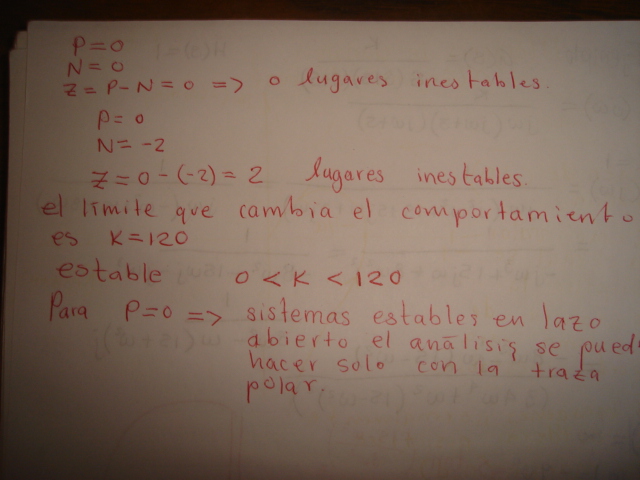 P=0
N=0
Z=P-N=0 => 0 lugares inestables.
P=0
N=-2
Z=0-(-2)=2 lugares inestables.
el límite que cambia el comportamiento
es K=120
estable 0<K<120
Para P=0 => sistemas estables en lazo
abierto el análisis se pued
hacer solo con la traza
polar.